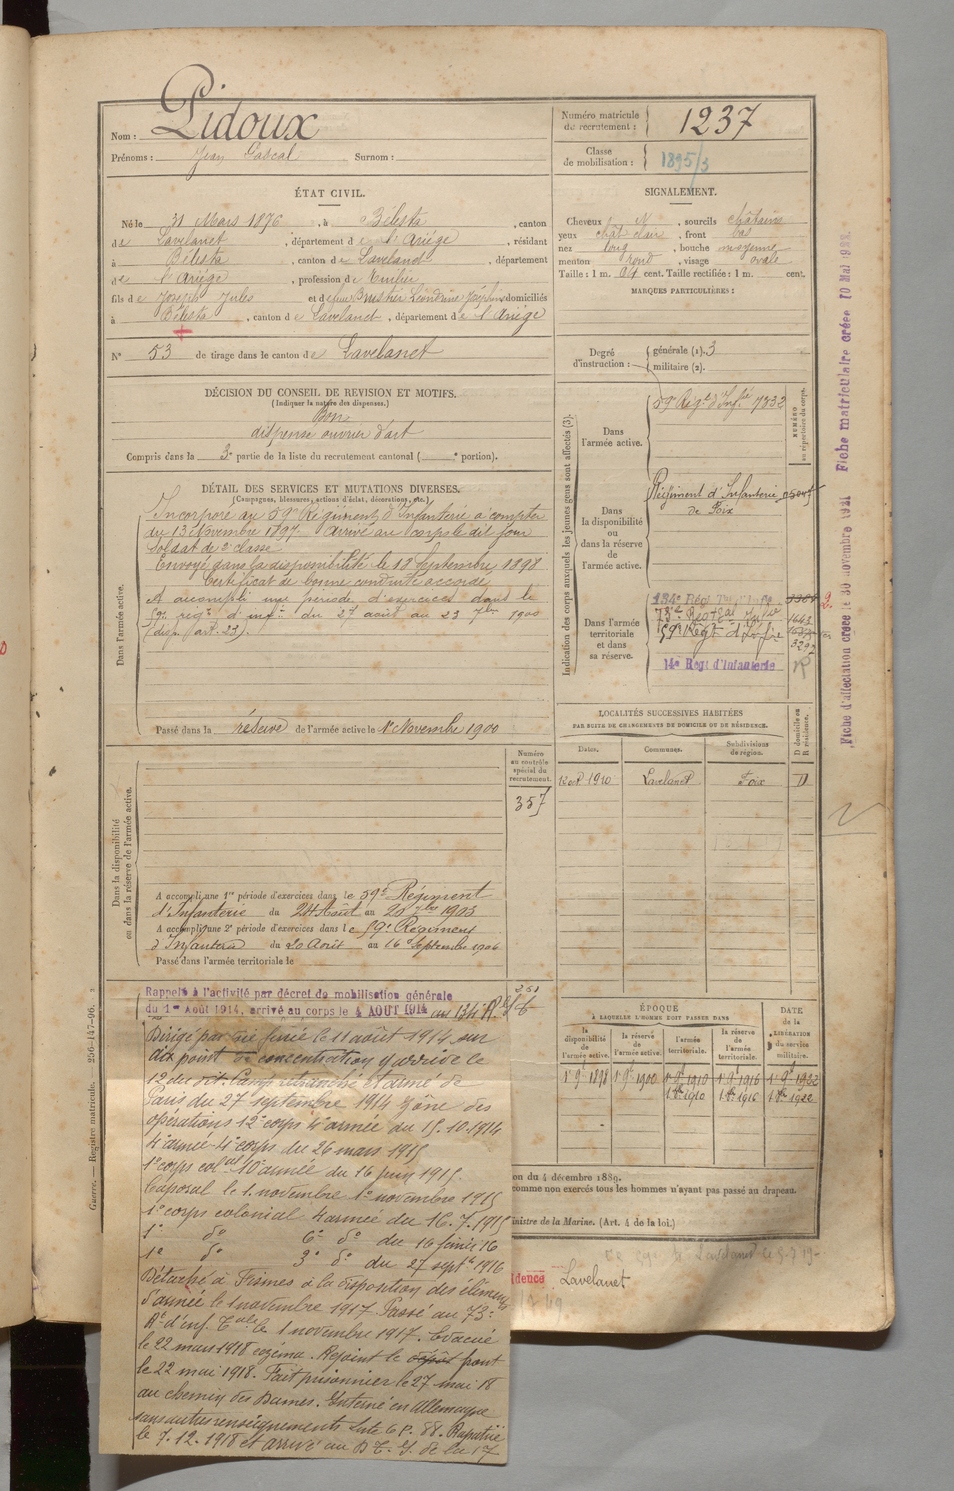 Nom : Pidoux
Prénoms : Jean Pascal Surnom :
Numéro matricule du recrutement : 1237
Classe de mobilisation : 1895/3
ÉTAT CIVIL.
Né le 31 Mars 1876, à Bélesta, canton
de Lavelanet, département de l'Ariége, résidant
à Bélesta, canton de Lavelanet, département
de l'Ariége, profession de
fils de Joseph Jules et de feue domiciliés
à Bélesta, canton de Lavelanet, département de l'Ariége
N° 53 de tirage dans le canton de Lavelanet
SIGNALEMENT.
Cheveux N, sourcils châtains
yeux chat clair, front bas
nez long, bouche moyenne
menton rond, visage ovale
Taille : 1 m. 64 cent. Taille rectifiée : 1 m. cent.
MARQUES PARTICULIÈRES :
Degré d'instruction : générale (1). 3
militaire (2).
DÉCISION DU CONSEIL DE REVISION ET MOTIFS.
(Indiquer la nature des dispenses.)
Bon
dispense ouvrier d'art
Compris dans la 3e partie de la liste du recrutement cantonal ( e portion).
DÉTAIL DES SERVICES ET MUTATIONS DIVERSES.
(Campagnes, blessures, actions d'éclat, décorations, etc.)
Dans l'armée active.
Incorporé au 59e Régiment d'Infanterie à compter
du 13 Novembre 1897. Arrivé au corps le dit jour
Soldat de 2e classe
Envoyé dans la disponibilité le 18 Septembre 1898
Certificat de bonne conduite accordé
A accompli une période d'exercices dans le
59e régt d'infie du 27 août au 23 7bre 1900
(disp. art. 23).
Passé dans la réserve de l'armée active le 1er Novembre 1900
Indication des corps auxquels les jeunes gens sont affectés (3).
NUMÉRO au répertoire du corps.
Dans l'armée active.
59e Régt d'Infie 7332
Dans la disponibilité ou dans la réserve de l'armée active.
Régiment d'Infanterie
de Foix
Dans l'armée territoriale et dans sa réserve.
134e Régt Tal d'Infie
73e Régt Tal Infie 1661
59e Régt d'Infie 3292
14e Régt d'Infanterie
Fiche d'affectation créée le 30 novembre 1921 Fiche matriculaire créée 10 Mai 1922
LOCALITÉS SUCCESSIVES HABITÉES
PAR SUITE DE CHANGEMENTS DE DOMICILE OU DE RÉSIDENCE.
D domicile ou R résidence.
Dates. Communes. Subdivisions de région.
12 oct 1910 Lavelanet Foix D
Numéro au contrôle spécial du recrutement.
357
Dans la disponibilité ou dans la réserve de l'armée active.
A accompli une 1re période d'exercices dans le 59e Régiment
d'Infanterie du 24 Août au 20 7bre 1903
A accompli une 2e période d'exercices dans le 59e Régiment
d'Infanterie du 20 Août au 16 Septembre 1906
Passé dans l'armée territoriale le
Rappelé à l'activité par décret de mobilisation générale
du 1er Août 1914, arrivé au corps le 4 AOUT 1914 au 134e R
Dirigé par voie ferrée le 11 août 1914 sur
dix point de concentration y arrive le
12 du dit. Camp retranché et armé de
Paris du 27 septembre 1914 Zône des
opérations 12e corps 4e armée du 15.10.1914
4e armée 4e corps du 26 mars 1915
1er corps colal 10e armée du 16 juin 1915.
Caporal le 1. novembre 1er novembre 1915
1er corps colonial 4e armée du 16.7.1915
1e do 6e do du 16 février 16
1e do 3e do du 27 septe 1916
Détaché à Fismes à la disposition des élémen
d'armée le 1 novembre 1917 Passé au 73e
Rt d'inf. Tale le 1 novembre 1917. Evacué
le 22 mars 1918 eczema. Rejoint le dépôt front
le 22 mai 1918. Fait prisonnier le 27 mai 18
au chemin des Dames. Interné en Allemagne
sans autres renseignements liste 6 P. 88. Rapatrié
le 7.12.1918 et arrivé au D. T. I. de la 17
ÉPOQUE
À LAQUELLE L'HOMME DOIT PASSER DANS
DATE de la LIBÉRATION du service militaire.
la disponibilité de l'armée active. la réserve de l'armée active. l'armée territoriale. la réserve de l'armée territoriale.
1er 9e 1898 1er 9e 1900 1er 9e 1910 1er 9e 1916 1er 9e 1922
1 8bre 1910 1 8bre 1916 1 8bre 1922
on du 4 décembre 1889.
comme non exercés tous les hommes n'ayant pas passé au drapeau.
inistre de la Marine. (Art. 4 de la loi.)
idence Lavelanet
Guerre. — Registre matricule. 256-147-96.